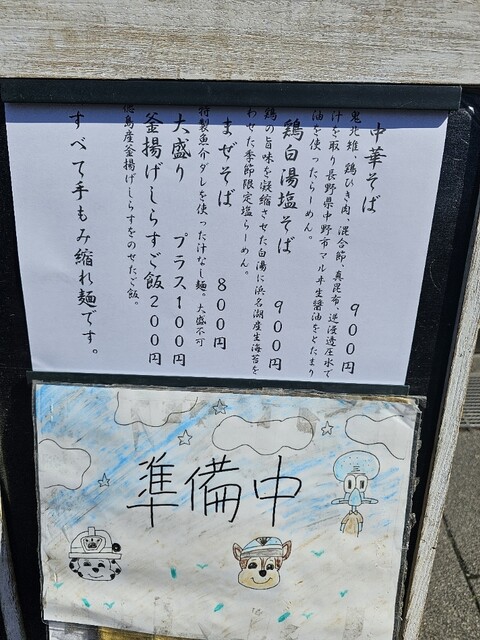 中華そば　９００円
鬼北雉、鶏ひき肉、混合節、真昆布、逆浸透圧水で
汁を取り長野県中野市マル半生醤油をとたまり
油を使ったらーめん。
鶏白湯塩そば　９００円
鶏の旨味を凝縮させた白湯に浜名湖産生海苔を
わせた季節限定塩らーめん。
まぜそば　８００円
特製魚介ダレを使った汁なし麺。大盛不可
大盛り　プラス１００円
釜揚げしらすご飯２００円
島産釜揚げしらすをのせたご飯。
すべて手もみ縮れ麺です。
準備中